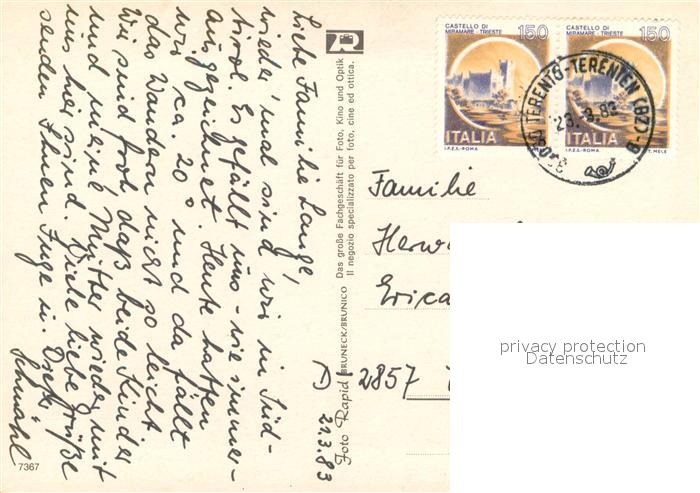 Liebe Familie Lange,
wieder mal sind wir in Süd-
tirol. Es gefällt uns - wie immer -
ausgezeichnet. Heute hatten
wir ca. 20° und da fällt
das Wandern nicht so leicht
Wir sind froh, daß beide Kinder
und meine Mutter wieder mit
uns hier sind. Viele liebe Grüße
senden Ihnen Inge u. Dieter
Schnähl
21.3.83
7367
Foto Rapid BRUNECK/BRUNICO
Das große Fachgeschäft für Foto, Kino und Optik
Il negozio specializzato per foto, cine ed ottica.
CASTELLO DI
MIRAMARE - TRIESTE
150
ITALIA
I.P.Z.S.-ROMA
CASTELLO DI
MIRAMARE - TRIESTE
150
ITALIA
I.P.Z.S.-ROMA
T. MELE
TERENTO-TERENTEN (BZ)-B
Familie
Erica
D-2857
privacy protection
Datenschutz